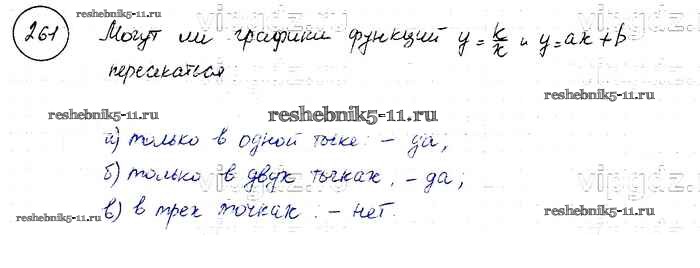 261 Могут ли графики функций y = k/x и y = ax + b
пересекаться
reshebnik5-11.ru
vipgdz.ru
reshebnik5-11.ru
reshebnik5-11.ru
а) только в одной точке: - да,
б) только в двух точках, - да;
в) в трех точках: - нет.
vipgdz.ru
reshebnik5-11.ru
reshebnik5-11.ru